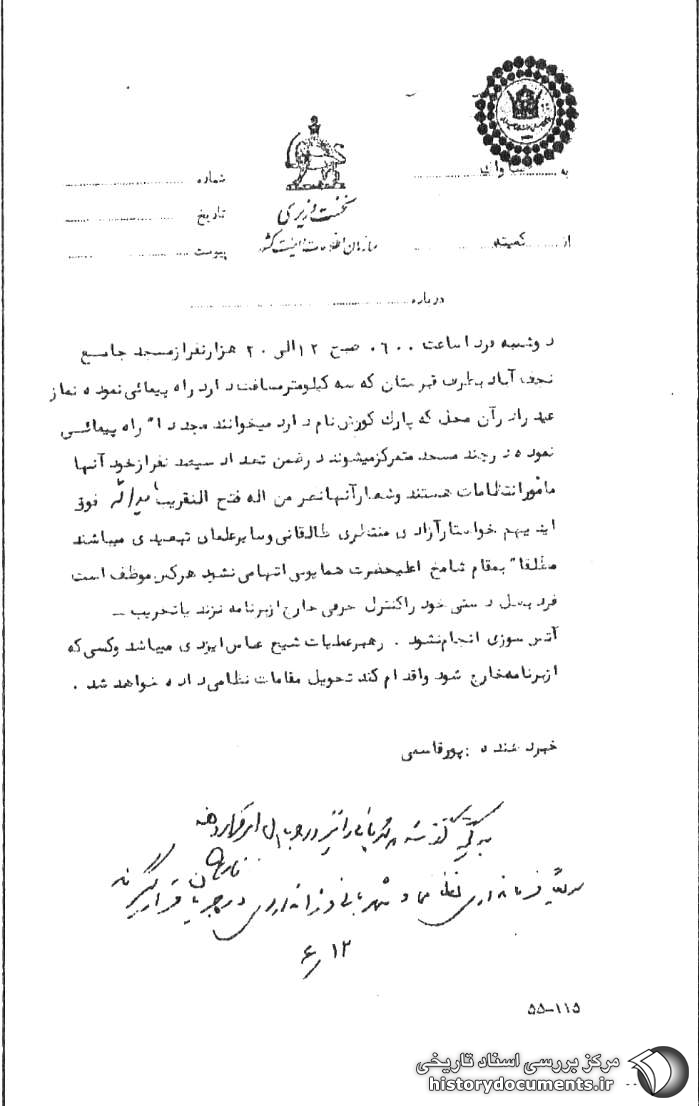 به ساواک
شماره
نخست وزیری
تاریخ
سازمان اطلاعات و امنیت کشور
از کمیته
پیوست
درباره
دوشنبه فردا ساعت ۰۶۰۰ صبح ۱۲ الی ۲۰ هزار نفر از مسجد جامع
نجف آباد بطرف قبرستان که سه کیلومتر مسافت دارد راه پیمائی نموده نماز
عید را در آن محل که پارک کورش نام دارد میخوانند مجددا" راه پیمائی
نموده در چند مسجد متمرکز میشوند در ضمن تعداد سیصد نفر از خود آنها
مأمور انتظامات هستند و شعار آنها نصر من اله فتح القریب یداله فوق
ایدیهم خواستار آزادی منتظری طالقانی و سایر علمای تبعیدی میباشند
مطلقا" بمقام شامخ اعلیحضرت همایونی اتهامی نشود هر کس موظف است
فرد بغل دستی خود را کنترل حرفی خارج از برنامه نزند یا تخریب –
آتش سوزی انجام نشود . رهبر عملیات شیخ عباس ایزدی میباشد و کسی که
از برنامه خارج شود و اقدام کند تحویل مقامات نظامی داده خواهد شد .
خبر دهنده : پورقاسمی
به کمیته گفته شد شهربانی را نیز در جریان امر قرار دهند
فرمانداری نظامی و شهربانی و ژاندارمری در جریان قرار گیرند
۱۲/۶
۵۵-۱۱۵
مرکز بررسی اسناد تاریخی
historydocuments.ir